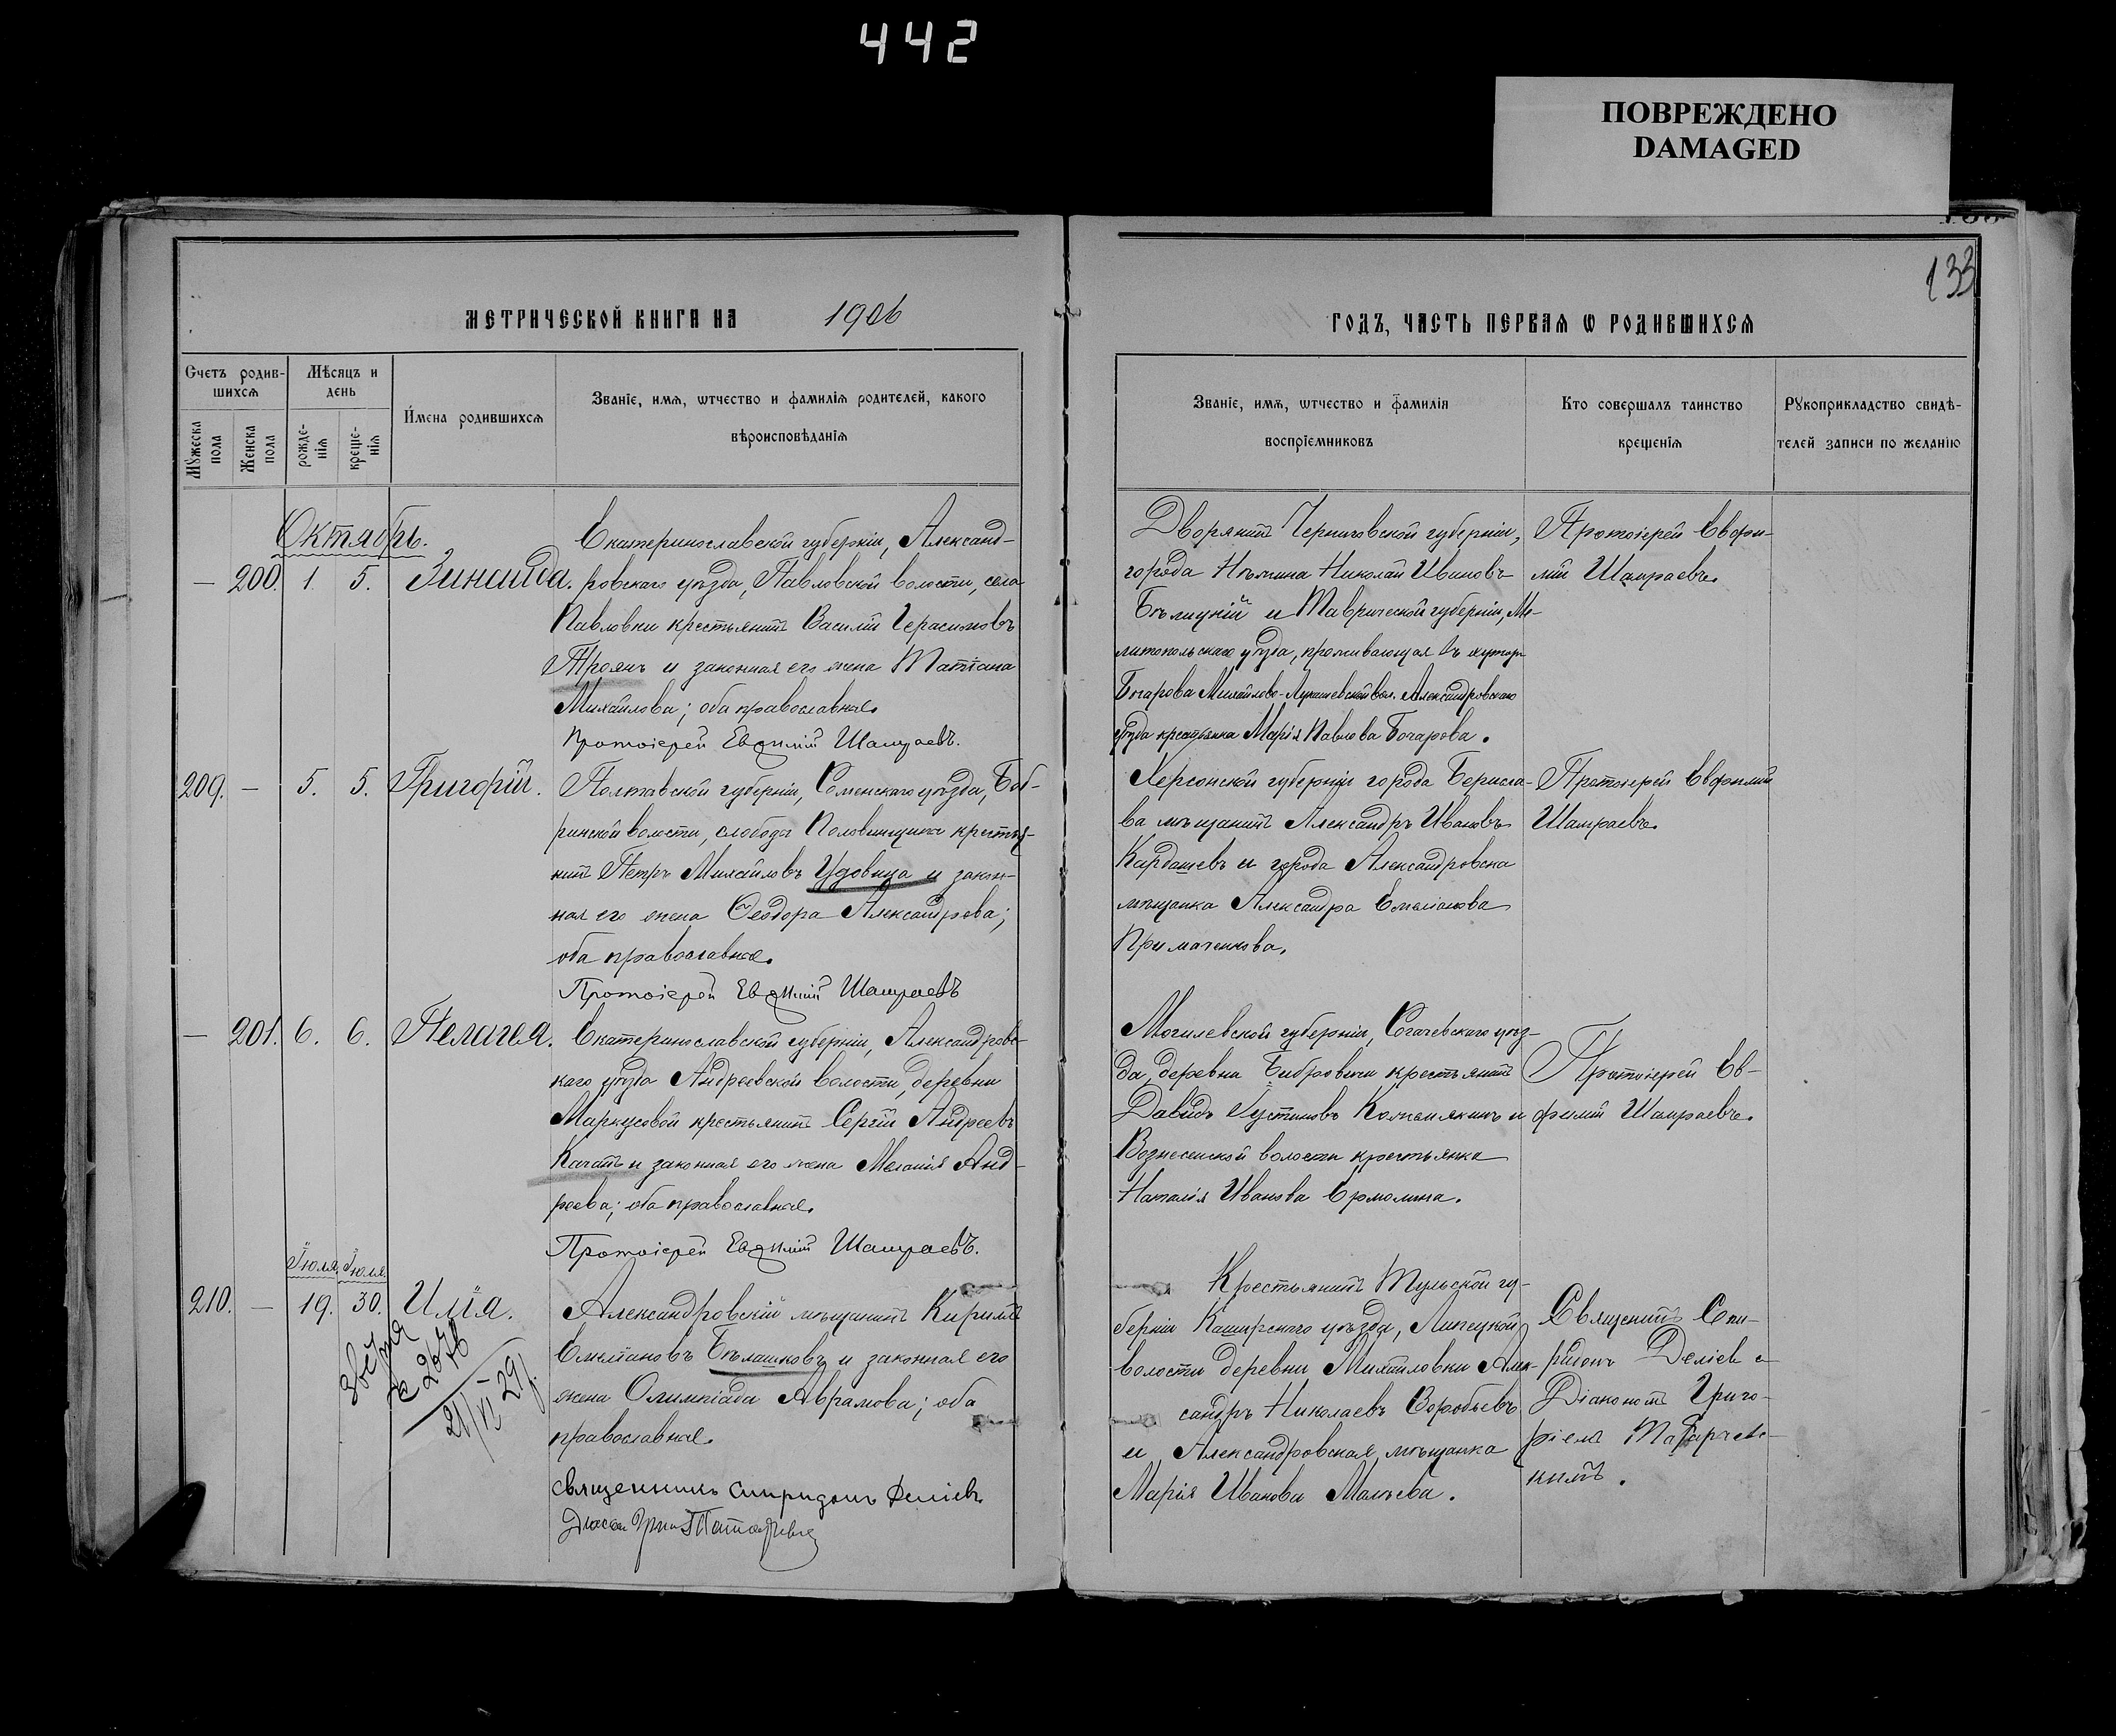 442
ПОВРЕЖДЕНО
DAMAGED
133
МЕТРИЧЕСКОЙ КНИГИ НА 1906
ГОДЪ, ЧАСТЬ ПЕРВАЯ Ѡ РОДИВШИХСЯ
Счетъ родив-
шихся
Мѣсяцъ и
день
Мꙋжеска
пола
Женска
пола
рожде-
нія
креще-
нія
Имена родившихся
Званіе, имя, ѡтчество и фамилія родителей, какого
вѣроисповѣданія
Званіе, имя, ѡтчество и фамилія
воспріемниковъ
Кто совершалъ таинство
крещенія
Рꙋкоприкладство свидѣ-
телей записи по желанію
Октябрь.
— 200. 1. 5. Зинаида.
Екатеринославской губерніи, Александ-
ровскаго уѣзда, Павловской волости, села
Павловки крестьянинъ Василій Герасимовъ
Троянъ и законная его жена Татіана
Михайлова; оба православные.
Протоіерей Евфимій Шамраевъ.
Дворянинъ Черниговской губерніи,
города Нѣжина Николай Ивановъ
Бѣлицкій и Таврической губерніи, Ме-
литопольскаго уѣзда, проживающая въ хуторѣ
Бочарова Михайлово-Лукашевской вол. Александровскаго
уѣзда крестьянка Марія Павлова Бочарова.
Протоіерей Евфи-
мій Шамраевъ.
209. — 5. 5. Григорій.
Полтавской губерніи, Роменскаго уѣзда, Боб-
рикской волости, слободы Половинщина крестья-
нинъ Петръ Михайловъ Удовица и закон-
ная его жена Ѳеодора Александрова;
оба православные.
Протоіерей Евфимій Шамраевъ
Херсонской губерніи города Берисла-
ва мѣщанинъ Александръ Ивановъ
Кардашевъ и города Александровска
мѣщанка Александра Емеліанова
Примаченкова.
Протоіерей Евфимій
Шамраевъ.
— 201. 6. 6. Пелагея.
Екатеринославской губерніи, Александровс-
каго уѣзда Андреевской волости, деревни
Маркусовой крестьянинъ Сергій Андреевъ
Качанъ и законная его жена Меланія Анд-
реева; оба православные.
Протоіерей Евфимій Шамраевъ.
Могилевской губерніи, Рогачевскаго уѣз-
да, деревни крестьянинъ
Давидъ Іустиновъ и
Вознесенской волости крестьянка
Наталія Иванова Ермолина.
Протоіерей Ев-
фимій Шамраевъ.
Іюля. Іюля.
210. — 19. 30. Илія.
Александровскій мѣщанинъ Кириллъ
Емеліановъ Бѣлашковъ и законная его
жена Олимпіада Аврамова; оба
православные.
Священникъ Спиридонъ Деліевъ
21/VI 29 г.
Крестьянинъ Тульской гу-
берніи Каширскаго уѣзда, Липецкой
волости деревни Михайловки Алек-
сандръ Николаевъ Воробьевъ
и Александровская мѣщанка
Марія Иванова Малѣева.
Священникъ Спи-
ридонъ Деліевъ с
Діакономъ Григо-
ріемъ Татарчев-
кимъ.